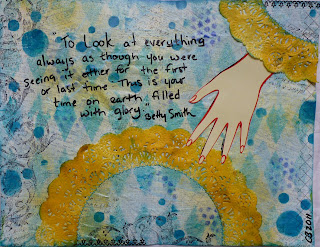 "To Look at everything
always as though you were
seeing it either for the first
or last time This is your
time on earth filled
with glory"
Betty Smith
CB 2011